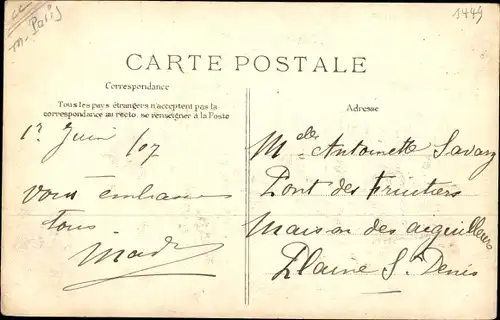 m. Paris
1449
CARTE POSTALE
Correspondance
Tous les pays étrangers n'acceptent pas la
correspondance au recto, se renseigner à la Poste
Adresse
1r Juin /07
vous embrasse
tous
Mad
Melle Antoinette Savary
Pont des Fruitiers
Maison des aiguilleurs
Plaine St Denis